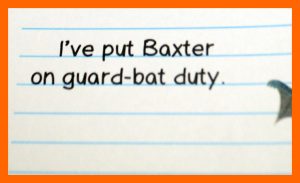 I've put Baxter
on guard-bat duty.